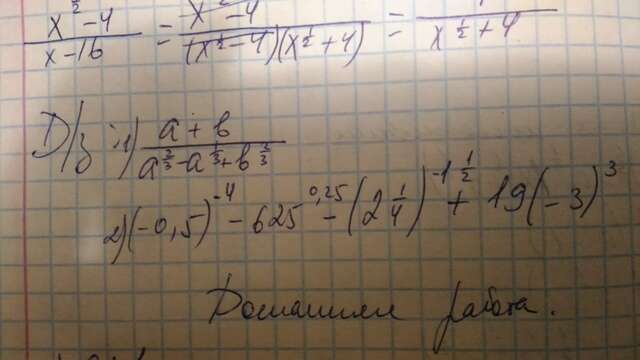 x^½ - 4 / x - 16 = x^½ - 4 / (x^½ - 4)(x^½ + 4) = 1 / x^½ + 4
Д/з: 1) a + b / a^⅔ - a^⅓ + b^⅔
2) (-0,5)^-4 - 625^0,25 - (2 1/4)^-1 1/2 + 19(-3)^3
Домашняя работа.